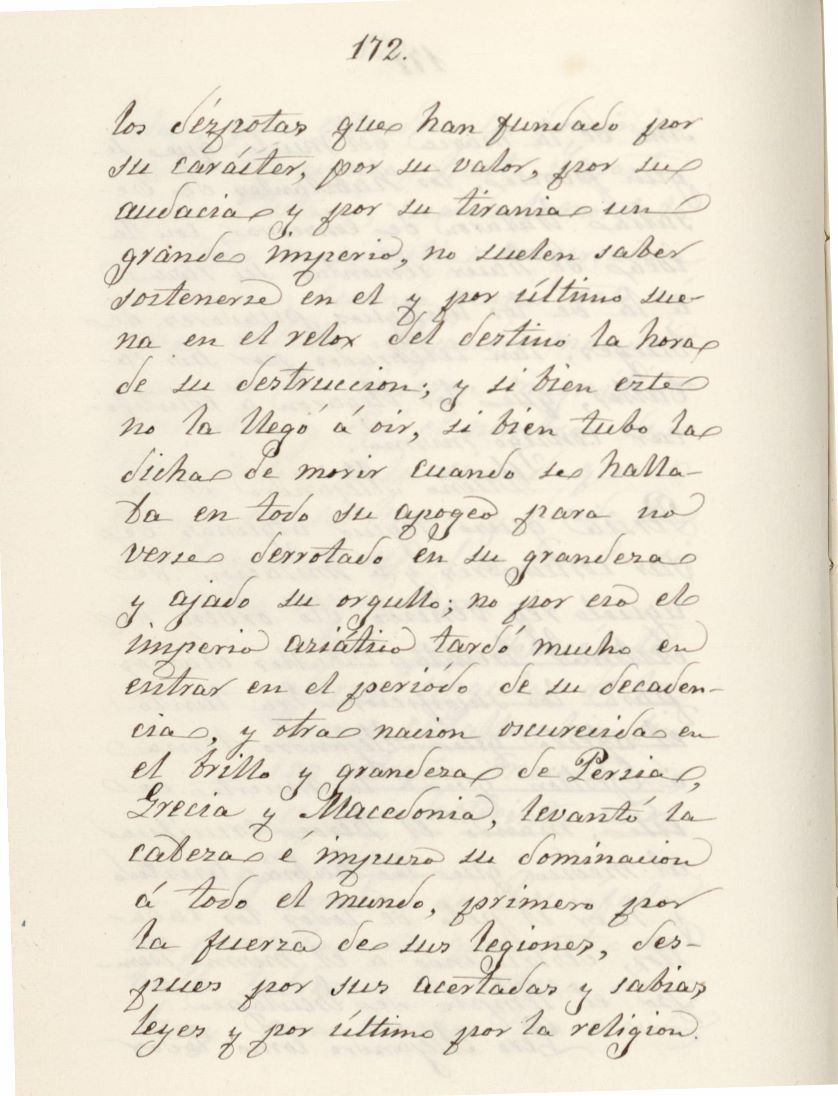 172.
los dézpotas que han fundado por
su carácter, por su valor, por su
audacia y por su tirania un
grande imperio, no suelen saber
sostenerse en el y por último sue-
na en el relox del destino la hora
de su destruccion; y si bien este
no la llegó á oir, si bien tubo la
dicha de morir cuando se halla-
ba en todo su apogeo para no
verse derrotado en su grandeza
y ajado su orgullo; no por eso el
imperio asiático tardó mucho en
entrar en el periódo de su decaden-
cia, y otra nacion oscurecida en
el brillo y grandeza de Persia,
Grecia y Macedonia, levantó la
cabeza é impuso su dominacion
á todo el mundo, primero por
la fuerza de sus legiones, des-
pues por sus acertadas y sabias
leyes y por último por la religion.